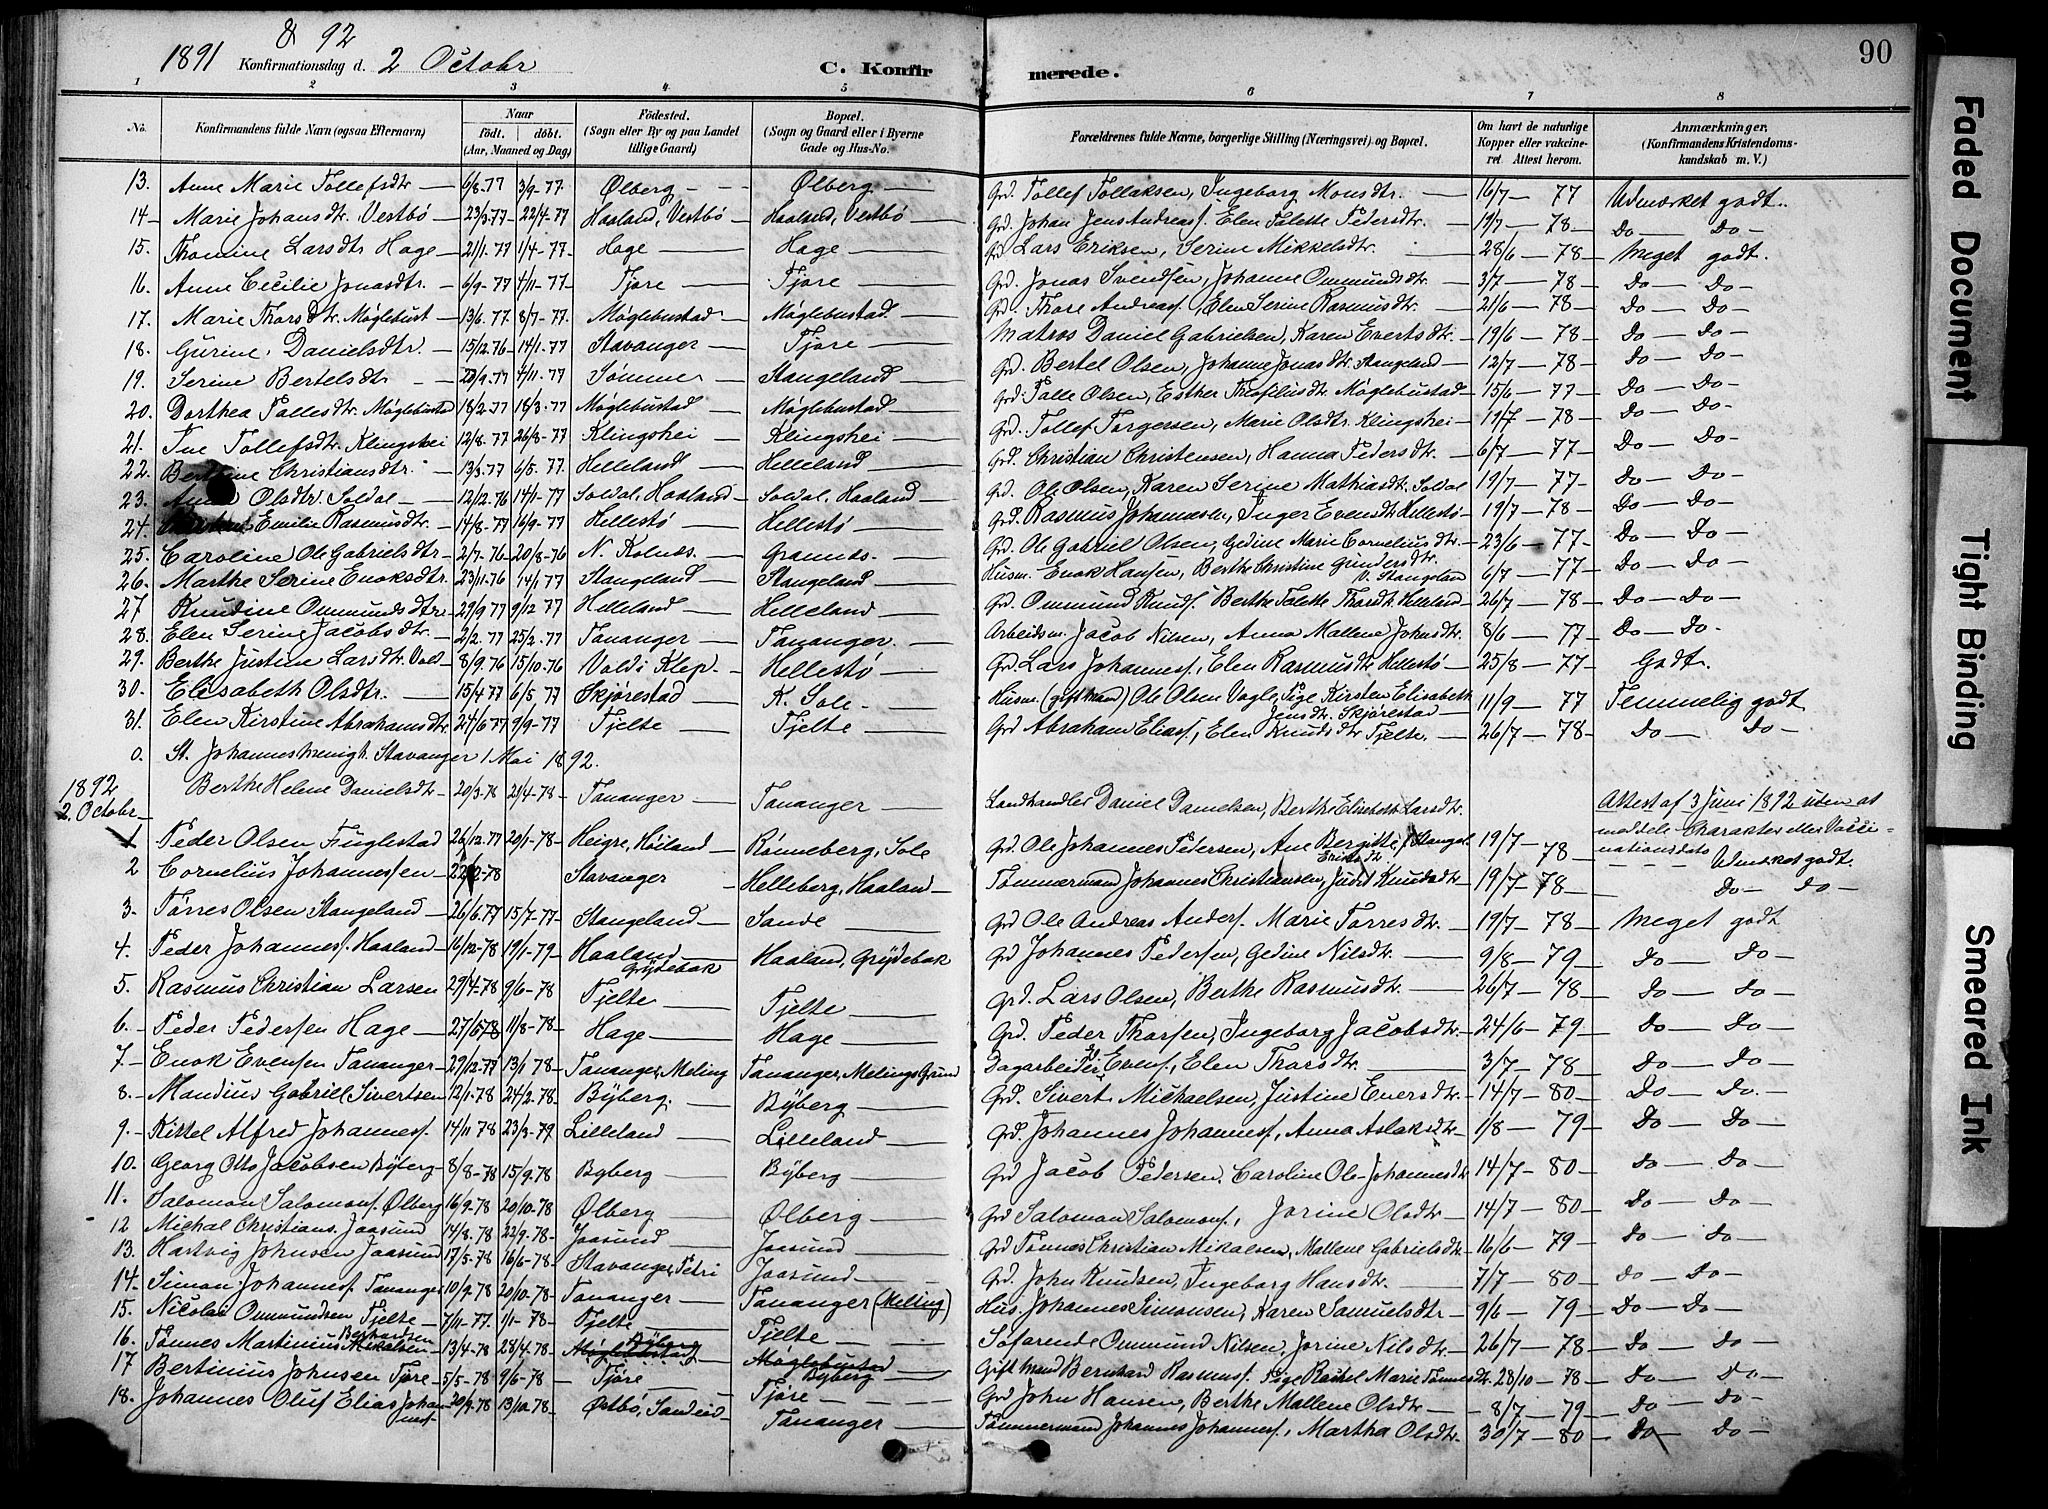 1891 & 92
Konfirmationsdag d. 2 Octobr C. Konfirmerede. 90
1 2 3 4 5 6 7 8
No. Konfirmandens fulde Navn (ogsaa Efternavn) Naar födt. döbt. (Aar, Maaned og Dag) Födested. (Sogn eller By og paa Landet tillige Gaard) Bopæl. (Sogn og Gaard eller i Byerne Gade og Hus-No. Forældrenes fulde Navne, borgerlige Stilling (Næringsvei) og Bopæl. Om havt de naturlige Kopper eller vaccineret Attest herom. Anmærkninger. (Konfirmandens Kristendomskundskab m. V.)
13. Anne Marie Tollefsdtr 6/8-77 3/9-77 Ølberg Ølberg Grd. Tollef Tollaksen, Ingeborg Monsdtr. 16/7 — 77 Udmærket godt.
14 Marie Johansdtr. Vestbø 23/3-77 22/4-77 Haaland, Vestbø Haaland, Vestbø Grd. Johan Jens Andreasf. Elen Talette Pedersdtr. 19/7 — 78 Do — Do
15. Thomine Larsdtr Hage 21/1-77 1/4-77 Hage Hage Grd Lars Eriksen, Serine Mikkelsdtr. 28/6 — 78 Meget godt.
16. Anne Cecilie Jonasdtr. 6/9-77 4/11-77 Tjore Tjore Grd. Jonas Svendsen, Johanne Ommundsdtr 3/7 — 78 Do — Do
17. Marie Thorsdtr. Møglebust 13/6.77 8/7-77. Møglebustad Møglebustad Grd. Thore Andreasf., Elen Serine Rasmusdtr. 21/6 — 78 Do — Do
18. Gurine Danielsdtr. 15/12.76 14/1-77 Stavanger Tjore Matros Daniel Gabrielsen, Karen Evertsdtr. 19/6 — 78 Do — Do
19. Serine Bertelsdtr 20/9-77 4/11-77 Sømme Stangeland Grd. Bertel Olsen, Johanne Jonasdtr Stangeland 12/7 — 78 Do — Do
20. Dorthea Tallesdtr. Møglebustad 18/2-77 18/3-77 Møglebustad Møglebustad Grd. Talle Olsen, Esther Theofilusdtr Møglebustad 15/6 — 77 Do — Do
21. Ine Tollefsdtr Klingshei 12/8.77 26/8-77 Klingshei Klingshei Grd. Tollef Torgersen, Marie Olsdtr. Klingshei 19/7 — 78 Do — Do
22. Christiansdtr. 13/3.77 6/5.77. Helleland Helleland Grd. Christian Christensen, Hanna Pedersdtr. 6/7 — 77 Do — Do
23. Olsdtr. Soldal 12/12.76 14/1-77 Soldal, Haaland Soldal, Haaland Grd. Ole Olsen, Karen Serine Mathiasdtr. Soldal 19/7 — 77 Do — Do
24. Emilie Rasmusdtr. 14/8.77 16/9-77 Hellestø Hellestø Grd. Rasmus Johannesen, Inger Evensdtr Hellestø 19/7 — 78 Do — Do
25. Caroline Ole Gabrielsdtr 2/7-76 20/8-76 N. Kolnæs. Grannæs. Grd. Ole Gabriel Olsen, Gedine Marie Corneliusdtr. 23/6 — 77 Do — Do
26. Marthe Serine Enoksdtr. 23/11.76 14/1 77 Stangeland Stangeland Husm. Enok Hansen, Berthe Christine Gundersdtr. V. Stangeland 6/7 — 77 Do — Do
27 Knudine Ommundsdtr 29/9 77 9/12 77 Helleland Helleland Grd. Ommund Knudf. Berthe Talette Thordtr. Helleland 26/7 — 78 Do — Do
28. Elen Serine Jacobsdtr. 2/2.77 25/2.77 Tananger Tananger. Arbeidsm. Jacob Nilsen, Anna Mallene Johnsdtr. 8/6 — 77 Do — Do
29. Berthe Justine Larsdtr. Vold 8/9.76 15/10-76 Vold i Klep. Hellestø Grd. Lars Johannesf., Elen Rasmusdtr Hellestø 25/8 — 77 Godt.
30. Elisabeth Olsdtr. 15/4.77 6/5 77 Skjørestad K. Sole Husm (gift Mand) Ole Olsen Vagle, Pige Kirsten Elisabeth Jensdtr. Skjørestad 11/9 — 77 Temmelig godt
31. Elen Kirstine Abrahamsdtr. 24/6 77 9/9-77 Tjelte Tjelte Grd Abraham Eliasf., Elen Knudsdtr Tjelte. 26/7 — 78 Do Do
0. St. Johannes menigh. Stavanger 1 Mai 1892.
1892 Berthe Helene Danielsdtr 20/3.78 21/4-78 Tananger Tananger Landhandler Daniel Danielsen, Berthe Elisabeth Larsdtr. Attest af 3 Juni 1892 uden at meddele Charakter eller Vaccinationsdato
2. Octobr
1 Peder Olsen Fuglestad 26/12.77 20/1-78 Heigre, Høiland Rønneberg, Sole Grd. Ole Johannes Pedersen, Ane Bergitte Eriksdtr. Stangel. 19/7 — 78 Udmærket godt.
2 Cornelius Johannessen 22/2-78 Stavanger Helleberg, Haaland Tømmermand Johannes Christiansen, Judit Knudsdtr. 19/7 — 78 Do — Do
3. Tørres Olsen Stangeland 26/6.77 15/7-77 Stangeland Sande Grd Ole Andreas Andersf. Marie Tørresdtr. 19/7 — 78 Meget godt
4. Peder Johannesf. Haaland 16/12-78 19/1-79 Haaland Grydebak Haaland, Grydebak Grd Johannes Pedersen, Gedine Nilsdtr. 9/8 — 79 Do — Do
5. Rasmus Christian Larsen 29/4-78 9/6-78 Tjelte Tjelte Grd. Lars Olsen, Berthe Rasmusdtr. 26/7 — 78 Do — Do
6. Peder Pedersen Hage 27/6 78 11/8-78 Hage Hage Grd. Peder Thorsen, Ingeborg Jacobsdtr. 24/6 — 79 Do — Do
7. Enok Evensen Tananger 29/12-77 13/1 78 Tananger, Meling Tananger, Melings Grund Dagarbeider Evenf., Elen Thorsdtr. 3/7 — 78 Do — Do
8. Mandius Gabriel Sivertsen 12/1-78 24/2-78 Byberg. Byberg Grd. Sivert Michaelsen, Justine Enersdtr. 14/7 — 80 Do — Do.
9. Kittel Alfred Johannesf. 14/11 78 23/3-79 Lilleland Lilleland Grd. Johannes Johannesf., Anna Aslaksdtr. 1/8 — 79 Do — Do
10. Georg Otto Jacobsen Byberg 8/8-78 15/9-78 Byberg Byberg Grd Jacob Pedersen, Caroline Ole-Johannesdtr 14/7 — 80 Do — Do
11. Salomon Salomonf. Ølberg 16/9-78 20/10-78 Ølberg Ølberg Grd Salomon Salomonf., Jorine Olsdtr 14/7 — 80 Do — Do
12 Michal Christians. Jaasund 14/8.78 22/9-78 Jaasund Jaasund Grd Tønnes Christian Mikalsen, Mallene Gabrielsdtr 16/6 — 79 Do — Do
13. Hartvig Johnsen Jaasund 17/5-78 16/6-78 Stavanger, Petri Jaasund Grd. John Knudsen, Ingeborg Hansdtr. 7/7 — 80 Do — Do
14. Simon Johannesf. Tananger 10/9-78 20/10-78 Tananger Tananger (Meling) Hus. Johannes Simonsen, Karen Samuelsdtr 9/6 — 79 Do — Do
15. Nicolai Ommundsen Tjelte 7/11-77. 1/1-78 Tjelte Tjelte Søfarende Ommund Nilsen, Jorine Nilsdtr. 26/7 — 78 Do Do
16. Tønnes Martinius Bernhardsen Mikalsen 13/4-78 28/4-78 Møglebustad Byberg Møglebustad Byberg Gift Mand Bernhard Rasmusf. Pige Rachel Marie Tønnesdtr. 28/10 — 78 Do — Do
17 Bertinius Johnsen Tjøre 5/5-78 9/6-78 Tjøre Tjøre Grd John Hansen, Berthe Mallene Olsdtr. 8/7 — 79 Do — Do
18. Johannes Oluf Elias Johannesf 20/9-78 13/10-78 Østbø, Sandeid Tananger Tømmermand Johannes Johannesf., Martha Olsdtr. 30/7 — 80 Do — Do
Faded Document
Tight Binding
Smeared Ink